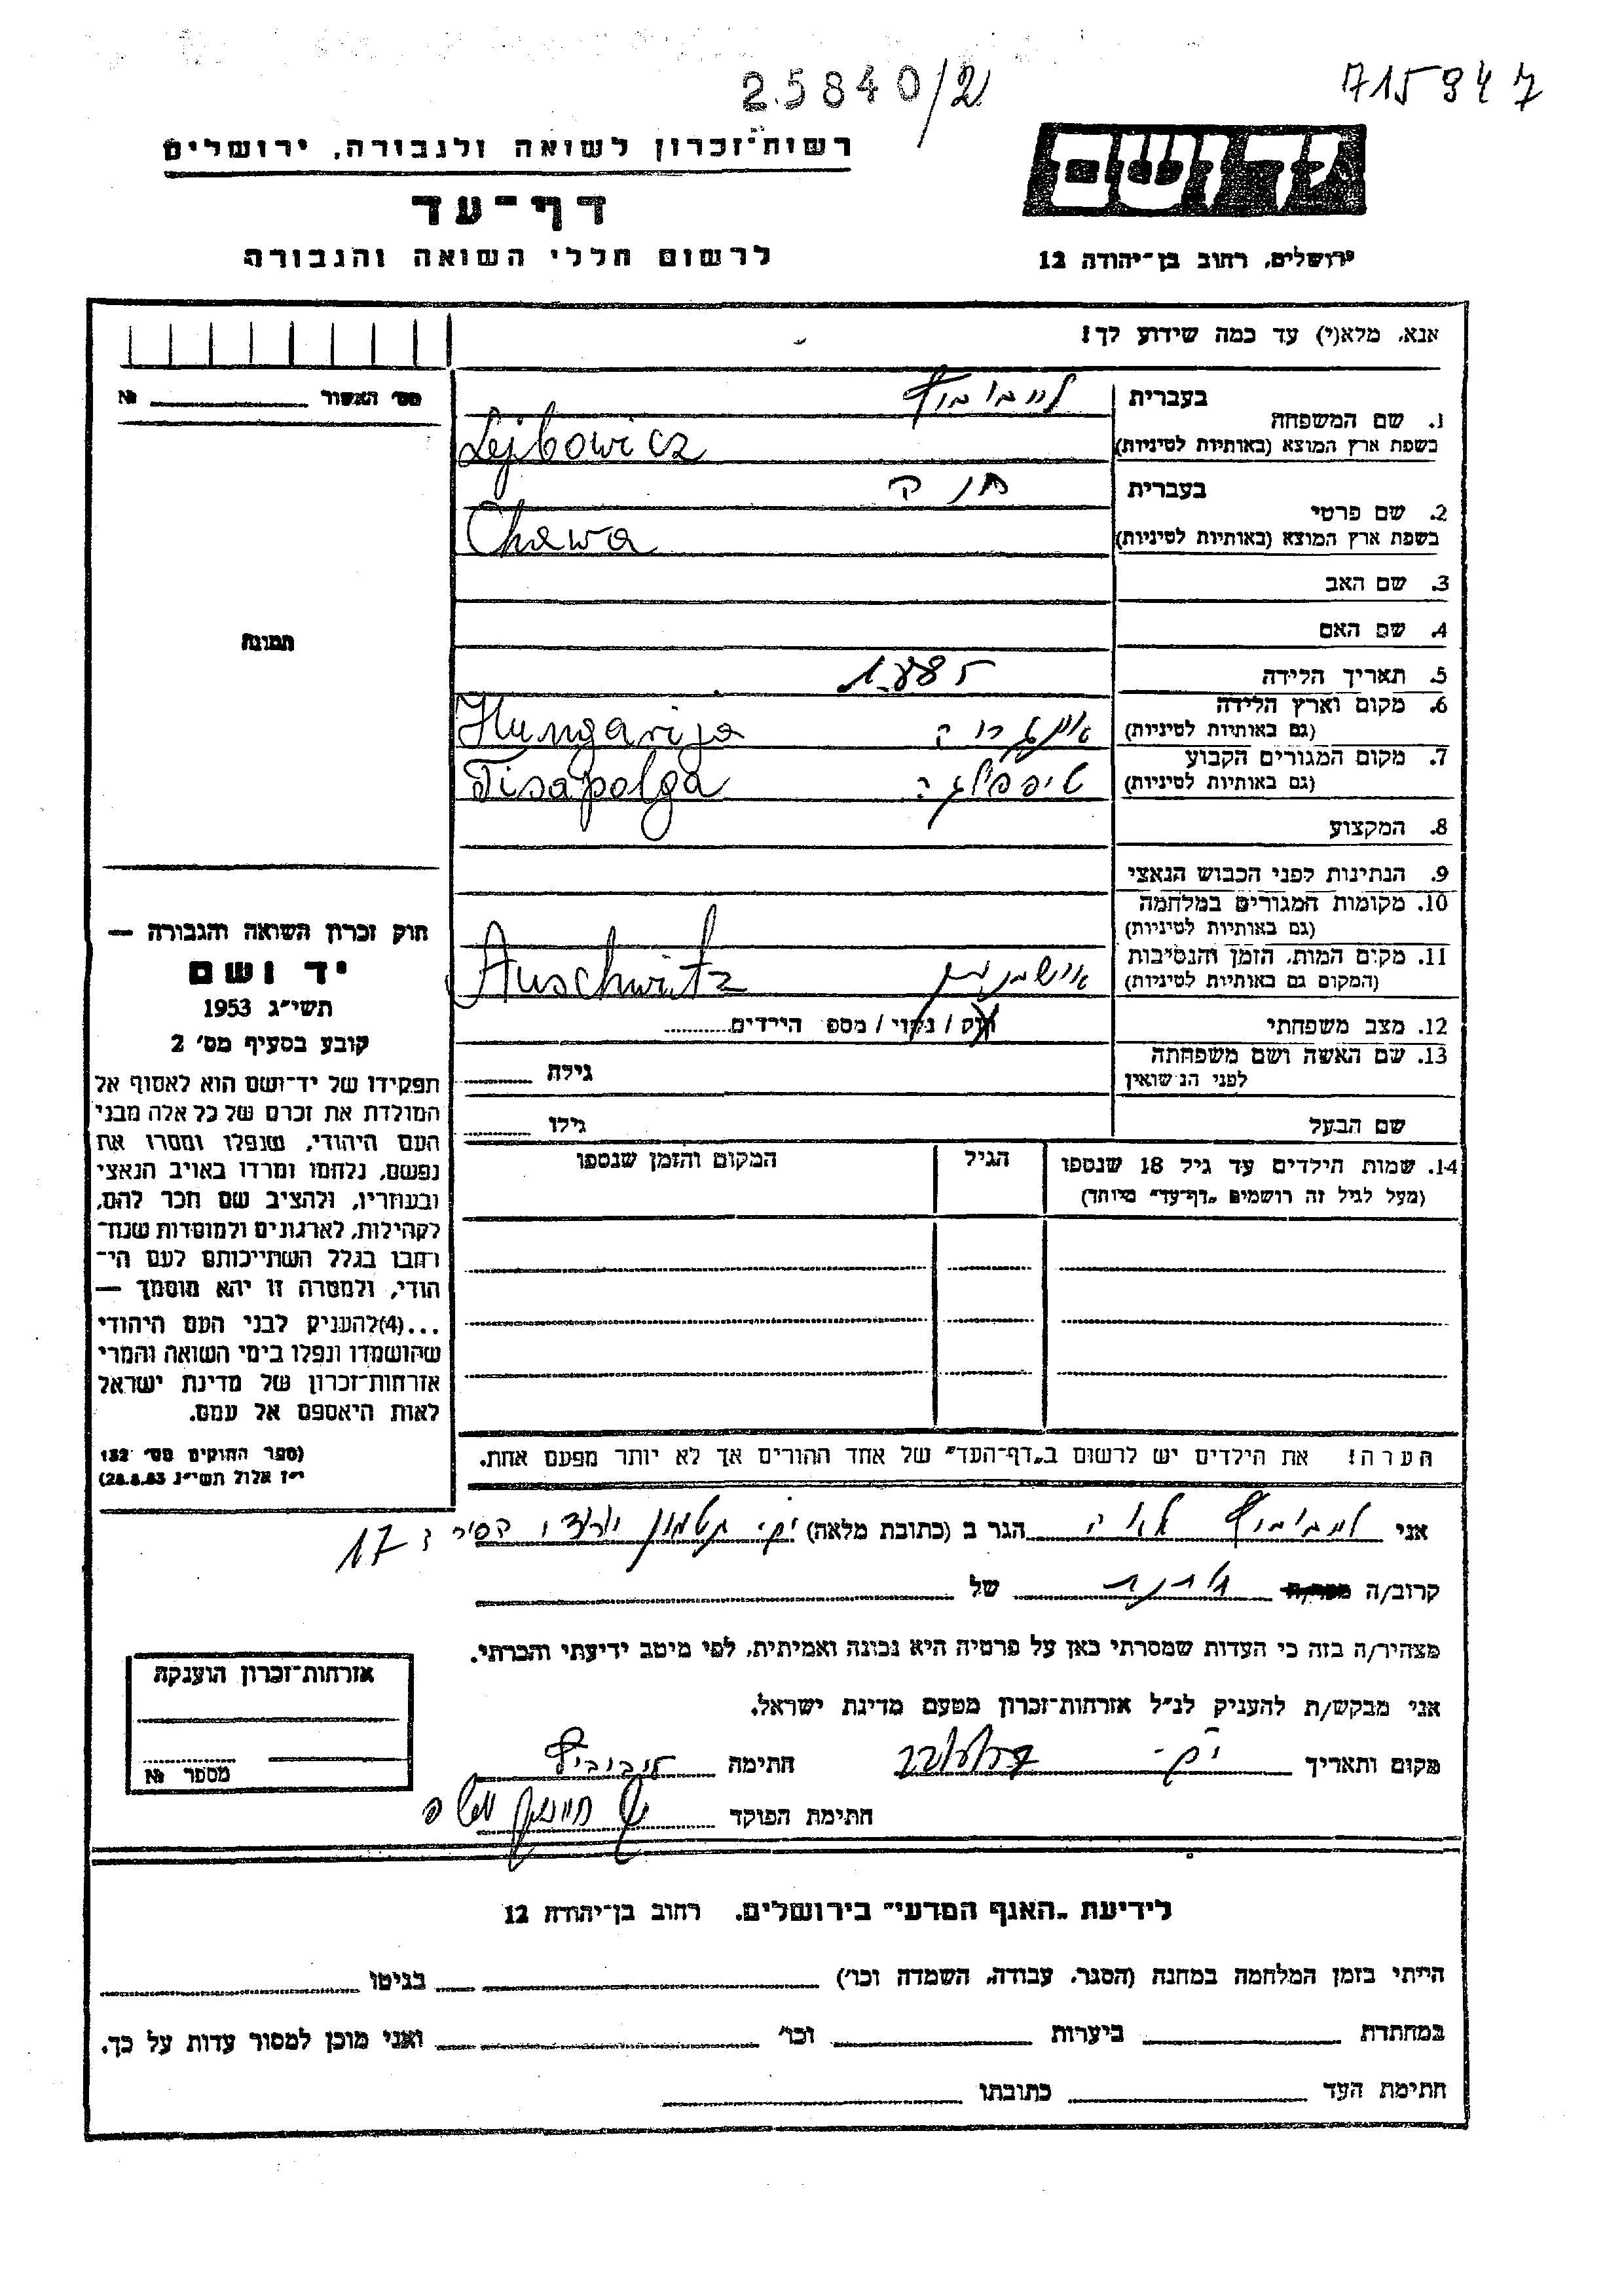 25840/2
715947
רשות־זכרון לשואה ולגבורה, ירושלים
דף־עד
לרשום חללי השואה והגבורה
יד ושם
ירושלים, רחוב בן־יהודה 12
אנא, מלא(י) עד כמה שידוע לך!
מס׳ האשור № 
1. שם המשפחה
בעברית לייבוביץ
בשפת ארץ המוצא (באותיות לטיניות) Lejbowicz
2. שם פרטי
בעברית
בשפת ארץ המוצא (באותיות לטיניות) Chawa
3. שם האב
4. שם האם
5. תאריך הלידה 1885
6. מקום וארץ הלידה
(גם באותיות לטיניות) אונגריה Hungarija
7. מקום המגורים הקבוע
(גם באותיות לטיניות) Tisapolga
8. המקצוע
9. הנתינות לפני הכבוש הנאצי
10. מקומות המגורים במלחמה
(גם באותיות לטיניות)
11. מקום המות, הזמן והנסיבות
(המקום גם באותיות לטיניות) אושויץ Auschwitz
12. מצב משפחתי רוק / נשוי / מספ הילדים
13. שם האשה ושם משפחתה
לפני הנישואין גילה
שם הבעל גילו
14. שמות הילדים עד גיל 18 שנספו הגיל המקום והזמן שנספו
(מעל לגיל זה רושמים „דף־עד” מיוחד)
הערה! את הילדים יש לרשום ב„דף־העד” של אחד ההורים אך לא יותר מפעם אחת.
תמונה
חוק זכרון השואה והגבורה —
יד ושם
תשי״ג 1953
קובע בסעיף מס׳ 2
תפקידו של יד־ושם הוא לאסוף אל
המולדת את זכרם של כל אלה מבני
העם היהודי, שנפלו ומסרו את
נפשם, נלחמו ומרדו באויב הנאצי
ובעוזריו, ולהציב שם וזכר להם,
לקהילות, לארגונים ולמוסדות שנח־
רבו בגלל השתייכותם לעם הי־
הודי, ולמטרה זו יהא מוסמך —
...(4)להעניק לבני העם היהודי
שהושמדו ונפלו בימי השואה והמרי
אזרחות־זכרון של מדינת ישראל
לאות היאספם אל עמם.
(ספר החוקים מס׳ 132
י״ז אלול תשי״ג 28.8.53)
אני לייבוביץ לאה הגר ב (כתובת מלאה) קטמון 17
קרוב/ה של
מצהיר/ה בזה כי העדות שמסרתי כאן על פרטיה היא נכונה ואמיתית, לפי מיטב ידיעתי והכרתי.
אני מבקש/ת להעניק לנ״ל אזרחות־זכרון מטעם מדינת ישראל.
מקום ותאריך חתימה ליבוביץ
חתימת הפוקד
אזרחות־זכרון הוענקה
מספר №
לידיעת „האגף המדעי” בירושלים, רחוב בן־יהודה 12
הייתי בזמן המלחמה במחנה (הסגר, עבודה, השמדה וכו׳) בגיטו
במחתרת ביערות וכו׳ ואני מוכן למסור עדות על כך.
חתימת העד כתובתו